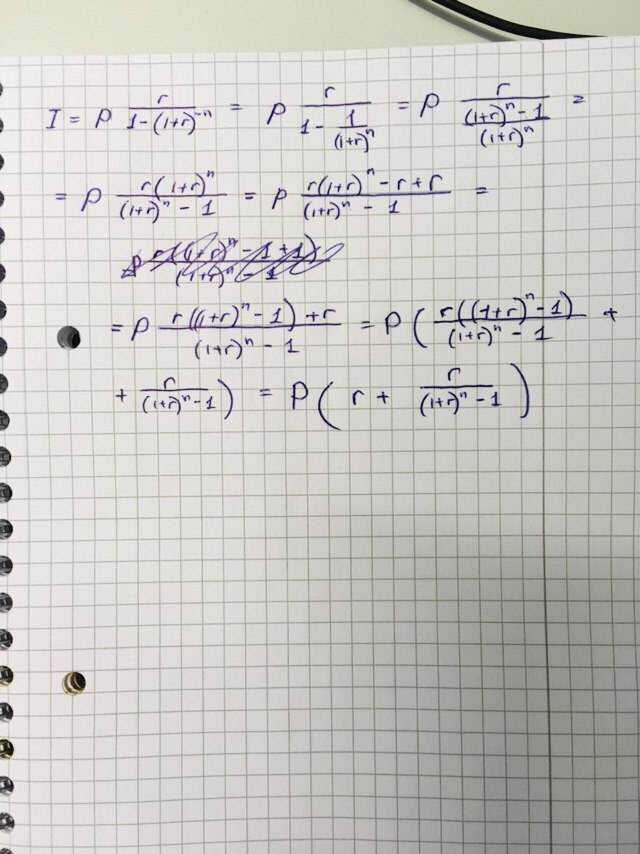 I = P \frac{r}{1-(1+r)^{-n}} = P \frac{r}{1 - \frac{1}{(1+r)^n}} = P \frac{r}{\frac{(1+r)^n - 1}{(1+r)^n}} =
= P \frac{r(1+r)^n}{(1+r)^n - 1} = P \frac{r(1+r)^n - r + r}{(1+r)^n - 1} =
= P \frac{r((1+r)^n - 1) + r}{(1+r)^n - 1} = P ( \frac{r((1+r)^n - 1)}{(1+r)^n - 1} +
+ \frac{r}{(1+r)^n - 1} ) = P ( r + \frac{r}{(1+r)^n - 1} )